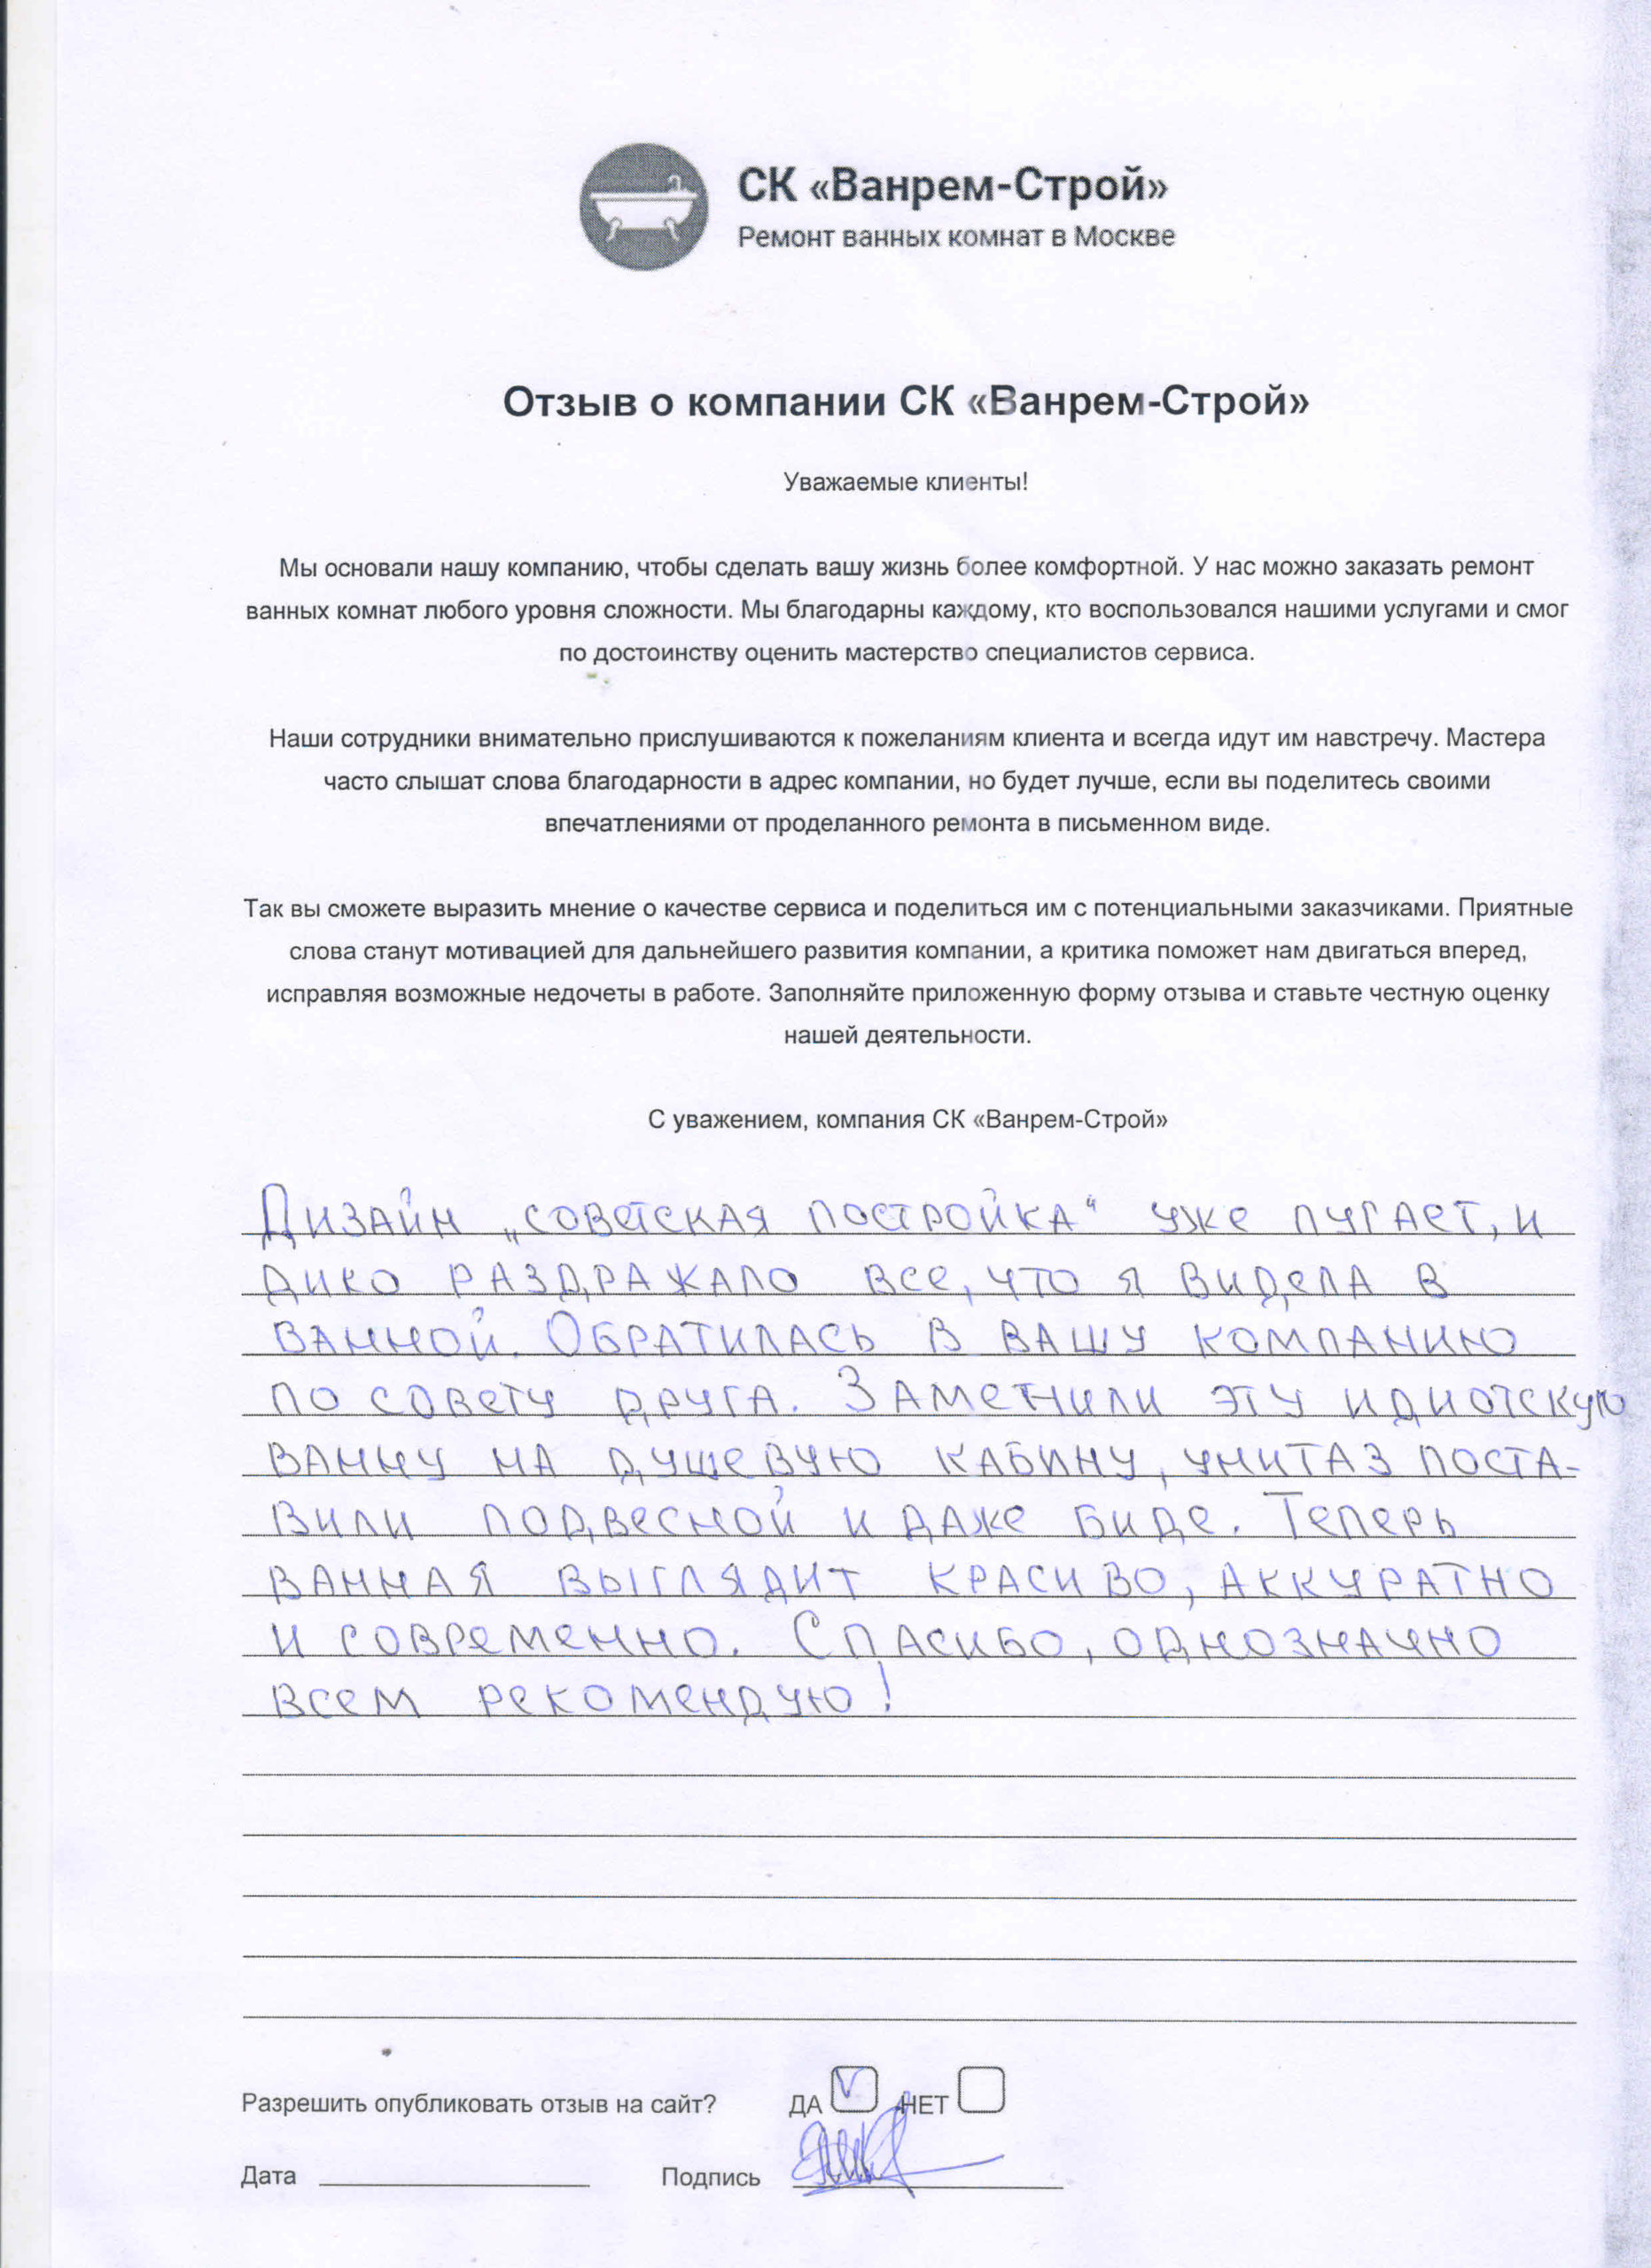 СК «Ванрем-Строй»
Ремонт ванных комнат в Москве
Отзыв о компании СК «Ванрем-Строй»
Уважаемые клиенты!
Мы основали нашу компанию, чтобы сделать вашу жизнь более комфортной. У нас можно заказать ремонт
ванных комнат любого уровня сложности. Мы благодарны каждому, кто воспользовался нашими услугами и смог
по достоинству оценить мастерство специалистов сервиса.
Наши сотрудники внимательно прислушиваются к пожеланиям клиента и всегда идут им навстречу. Мастера
часто слышат слова благодарности в адрес компании, но будет лучше, если вы поделитесь своими
впечатлениями от проделанного ремонта в письменном виде.
Так вы сможете выразить мнение о качестве сервиса и поделиться им с потенциальными заказчиками. Приятные
слова станут мотивацией для дальнейшего развития компании, а критика поможет нам двигаться вперед,
исправляя возможные недочеты в работе. Заполняйте приложенную форму отзыва и ставьте честную оценку
нашей деятельности.
С уважением, компания СК «Ванрем-Строй»
Дизайн „советская постройка“ уже пугает, и
дико раздражало все, что я видела в
ванной. Обратилась в вашу компанию
по совету друга. Заметнили эту идиотскую
ванну на душевую кабину, унитаз поста-
вили подвесной и даже биде. Теперь
ванная выглядит красиво, аккуратно
и современно. Спасибо, однозначно
всем рекомендую!
Разрешить опубликовать отзыв на сайт? ДА V НЕТ
Дата Подпись